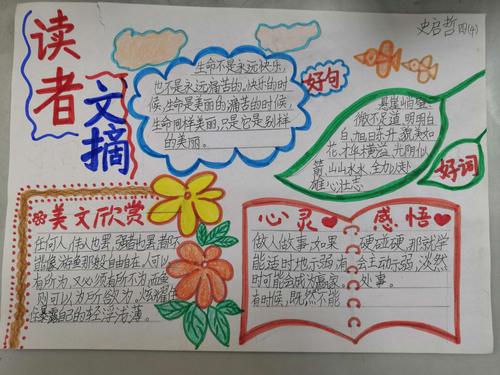 读者
文摘
史启哲 四(4)
生命不是永远快乐,
也不是永远痛苦的,快乐的时
候,生命是美丽的,痛苦的时候,
生命同样美丽,只是它是别样
的美丽。
好句
悬崖峭壁
微不足道 明明白
白 旭日东升 貌美如
花
光阴似
箭 山山水水 全力以赴
雄心壮志
好词
美文欣赏
任何人,伟人也罢,强者也罢,都不
能像游鱼那般自由自在,人可以
有所为,又必须有所不为,而鱼
则可以为所欲为。炫耀往
往暴露自己的轻浮浅薄。
心灵 感悟
做人做事,如果
能适时地示弱,有
时可能会成为赢家。
有时候,既然不能
硬碰硬,那就学
会主动示弱,淡然
处事。